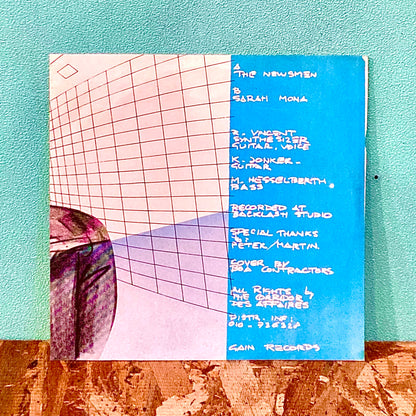 A
THE NEWSMEN
B
SARAH MONA
R. VINCENT
SYNTHESIZER
GUITAR, VOICE
K. JONKER -
GUITAR
M. HESSELBERTH.
BASS
RECORDED AT
BACKLASH STUDIO
SPECIAL THANKS
TO:
PETER/MARTIN.
COVER BY
BOA CONTRACTORS
ALL RIGHTS
THE CORRIDOR
DES AFFAIRES
DISTR. INF:
GAIN RECORDS